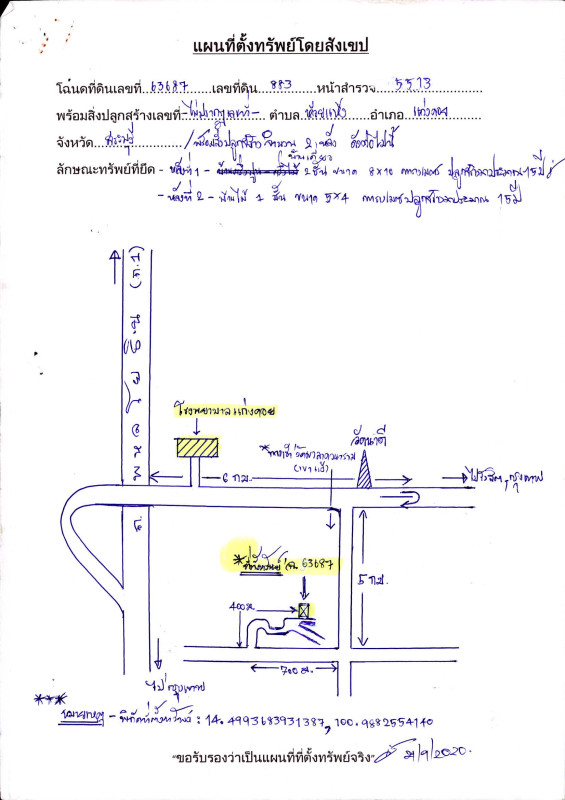 แผนที่ตั้งทรัพย์โดยสังเขป
โฉนดที่ดินเลขที่ 63687 เลขที่ดิน 883 หน้าสำรวจ 5513
พร้อมสิ่งปลูกสร้างเลขที่ -ไม่ปรากฏเลขที่- ตำบล ห้วยแห้ง อำเภอ แก่งคอย
จังหวัด สระบุรี /พร้อมสิ่งปลูกสร้าง จำนวน 2 หลัง ดังต่อไปนี้
บ้านเดี่ยว
ลักษณะทรัพย์ที่ยึด - หลังที่ 1 - 2 ชั้น ขนาด 8x10 ตารางเมตร ปลูกสร้างมาประมาณ 15 ปี
- หลังที่ 2 - บ้านไม้ 1 ชั้น ขนาด 5x4 ตารางเมตร ปลูกสร้างมาประมาณ 15 ปี
ถ. มิตรภาพ (ท.1)
โรงพยาบาลแก่งคอย
*ทางเข้าวัด
(เขาแก้ว)
วัดนาดี
6 กม.
ไปรังสิต, กรุงเทพ
*ที่ตั้งทรัพย์ ฉ. 63687
5 กม.
400 ม.
700 ม.
ไปกรุงเทพ
***
หมายเหตุ - พิกัดที่ตั้งทรัพย์ : 14.4993683931387, 100.9882554140
"ขอรับรองว่าเป็นแผนที่ที่ตั้งทรัพย์จริง" 21/9/2020.